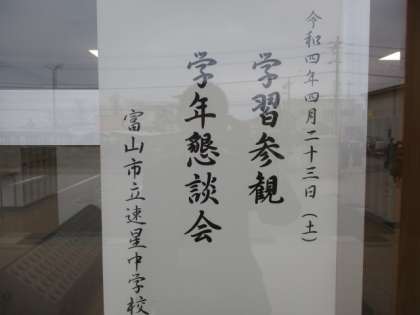 令和四年四月二十三日（土）
学習参観
学年懇談会
富山市立速星中学校